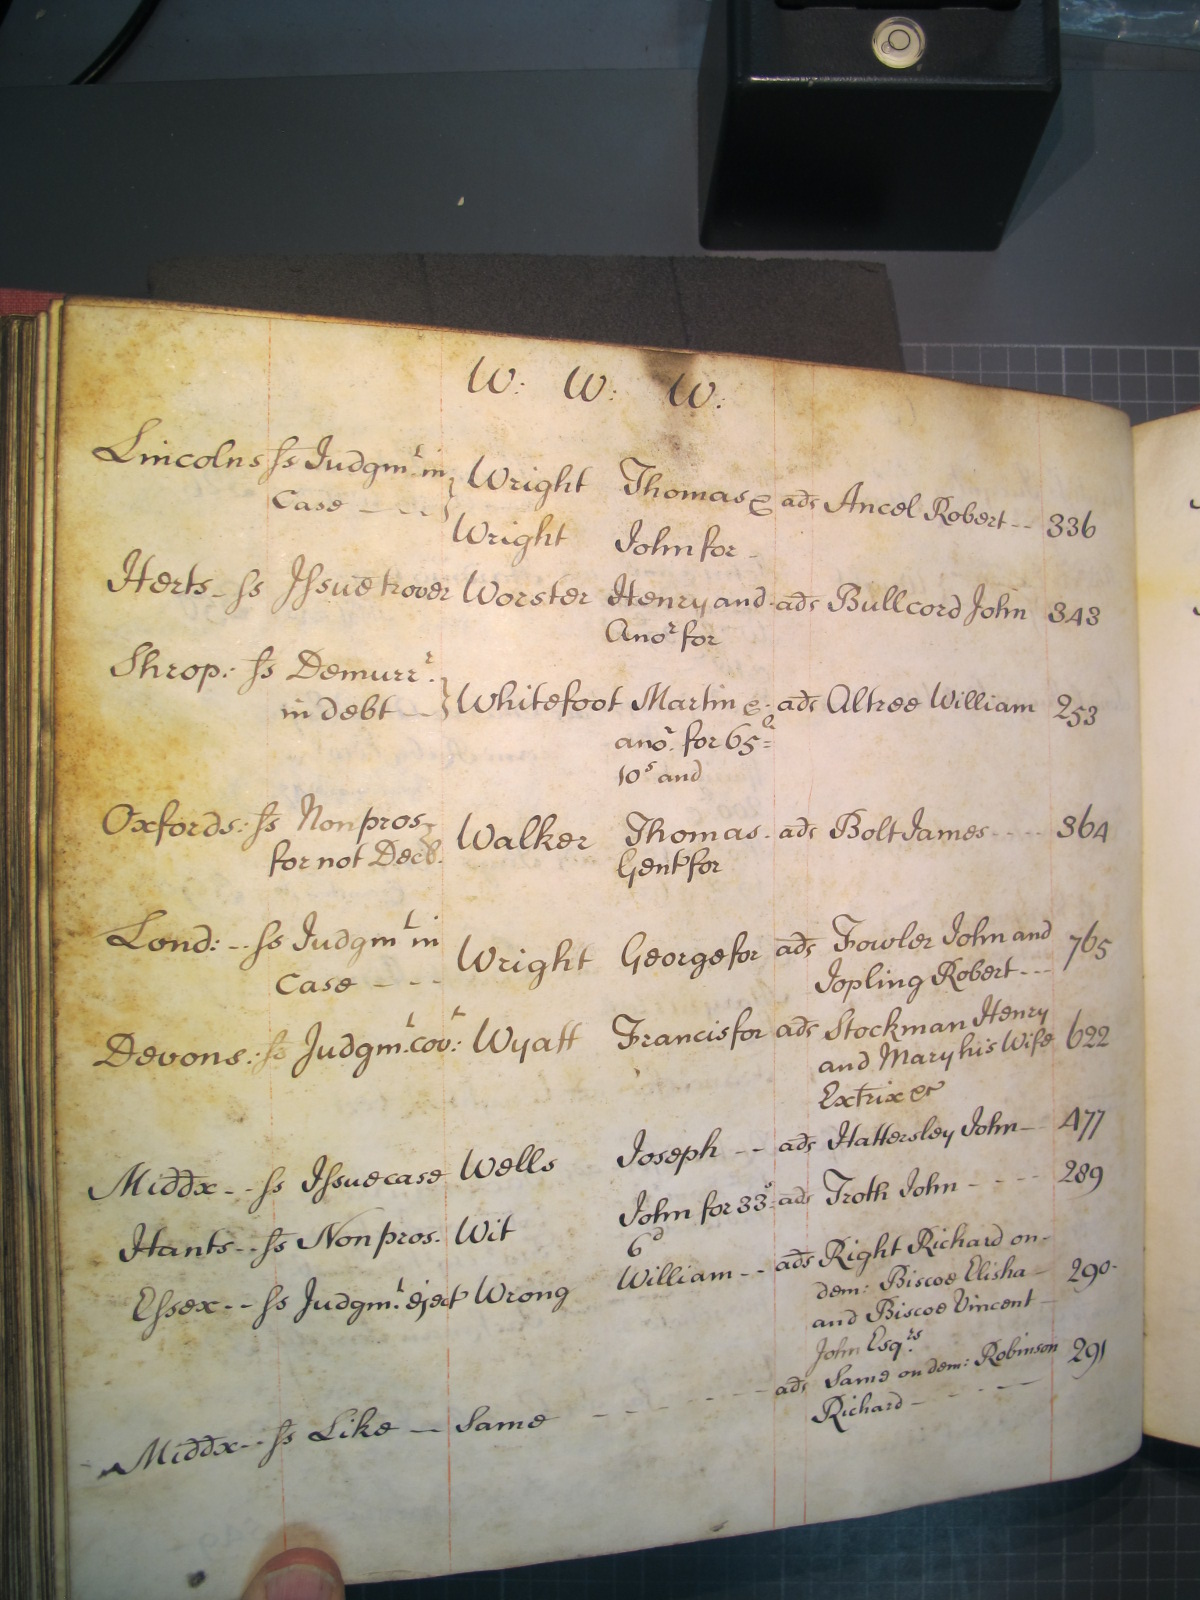 W: W: W:
Lincolns ss Judgmt in Wright Thomas & ads Ancel Robert -- 336
Case - - - Wright John for -
Herts - ss Issue trover Worster Henry and ads Bullcord John 343
Anor for
Shrop: ss Demurrr
in debt - Whitefoot Martin & ads Altree William 253
anor for 65
10s and
Oxfords: ss Nonpros
for not Decl. Walker Thomas ads Bolt James - - - - 364
Gent for
Lond: -- ss Judgmt in Wright George for ads Fowler John and 765
Case - - - Jopling Robert ---
Devons: ss Judgmt covt: Wyatt Francis for ads Stockman Henry 622
and Mary his Wife
Extrix &c
Middx -- ss Issue case Wells Joseph -- ads Hattersley John - 477
Hants -- ss Nonpros. Wit John for 33s ads Troth John - - - - 289
6d
Essex -- ss Judgmt eject Wrong William -- ads Right Richard on-
dem: Biscoe Elisha 290
and Biscoe Vincent
John Esqrs
Middx -- ss Like - Same - - - - - ads Same on dem: Robinson 291
Richard - - - -